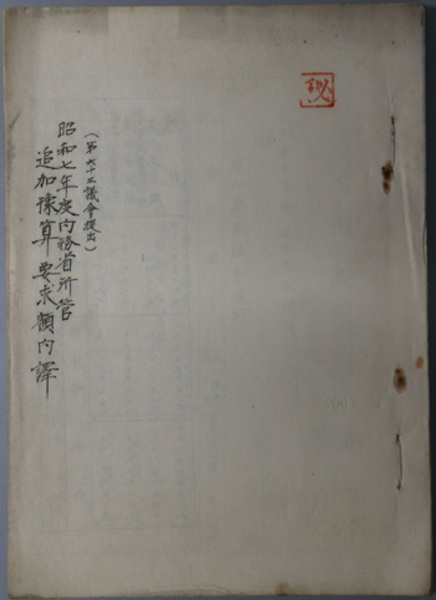 秘
(第六十三議會提出)
昭和七年度内務省所管
追加豫算要求額内譯